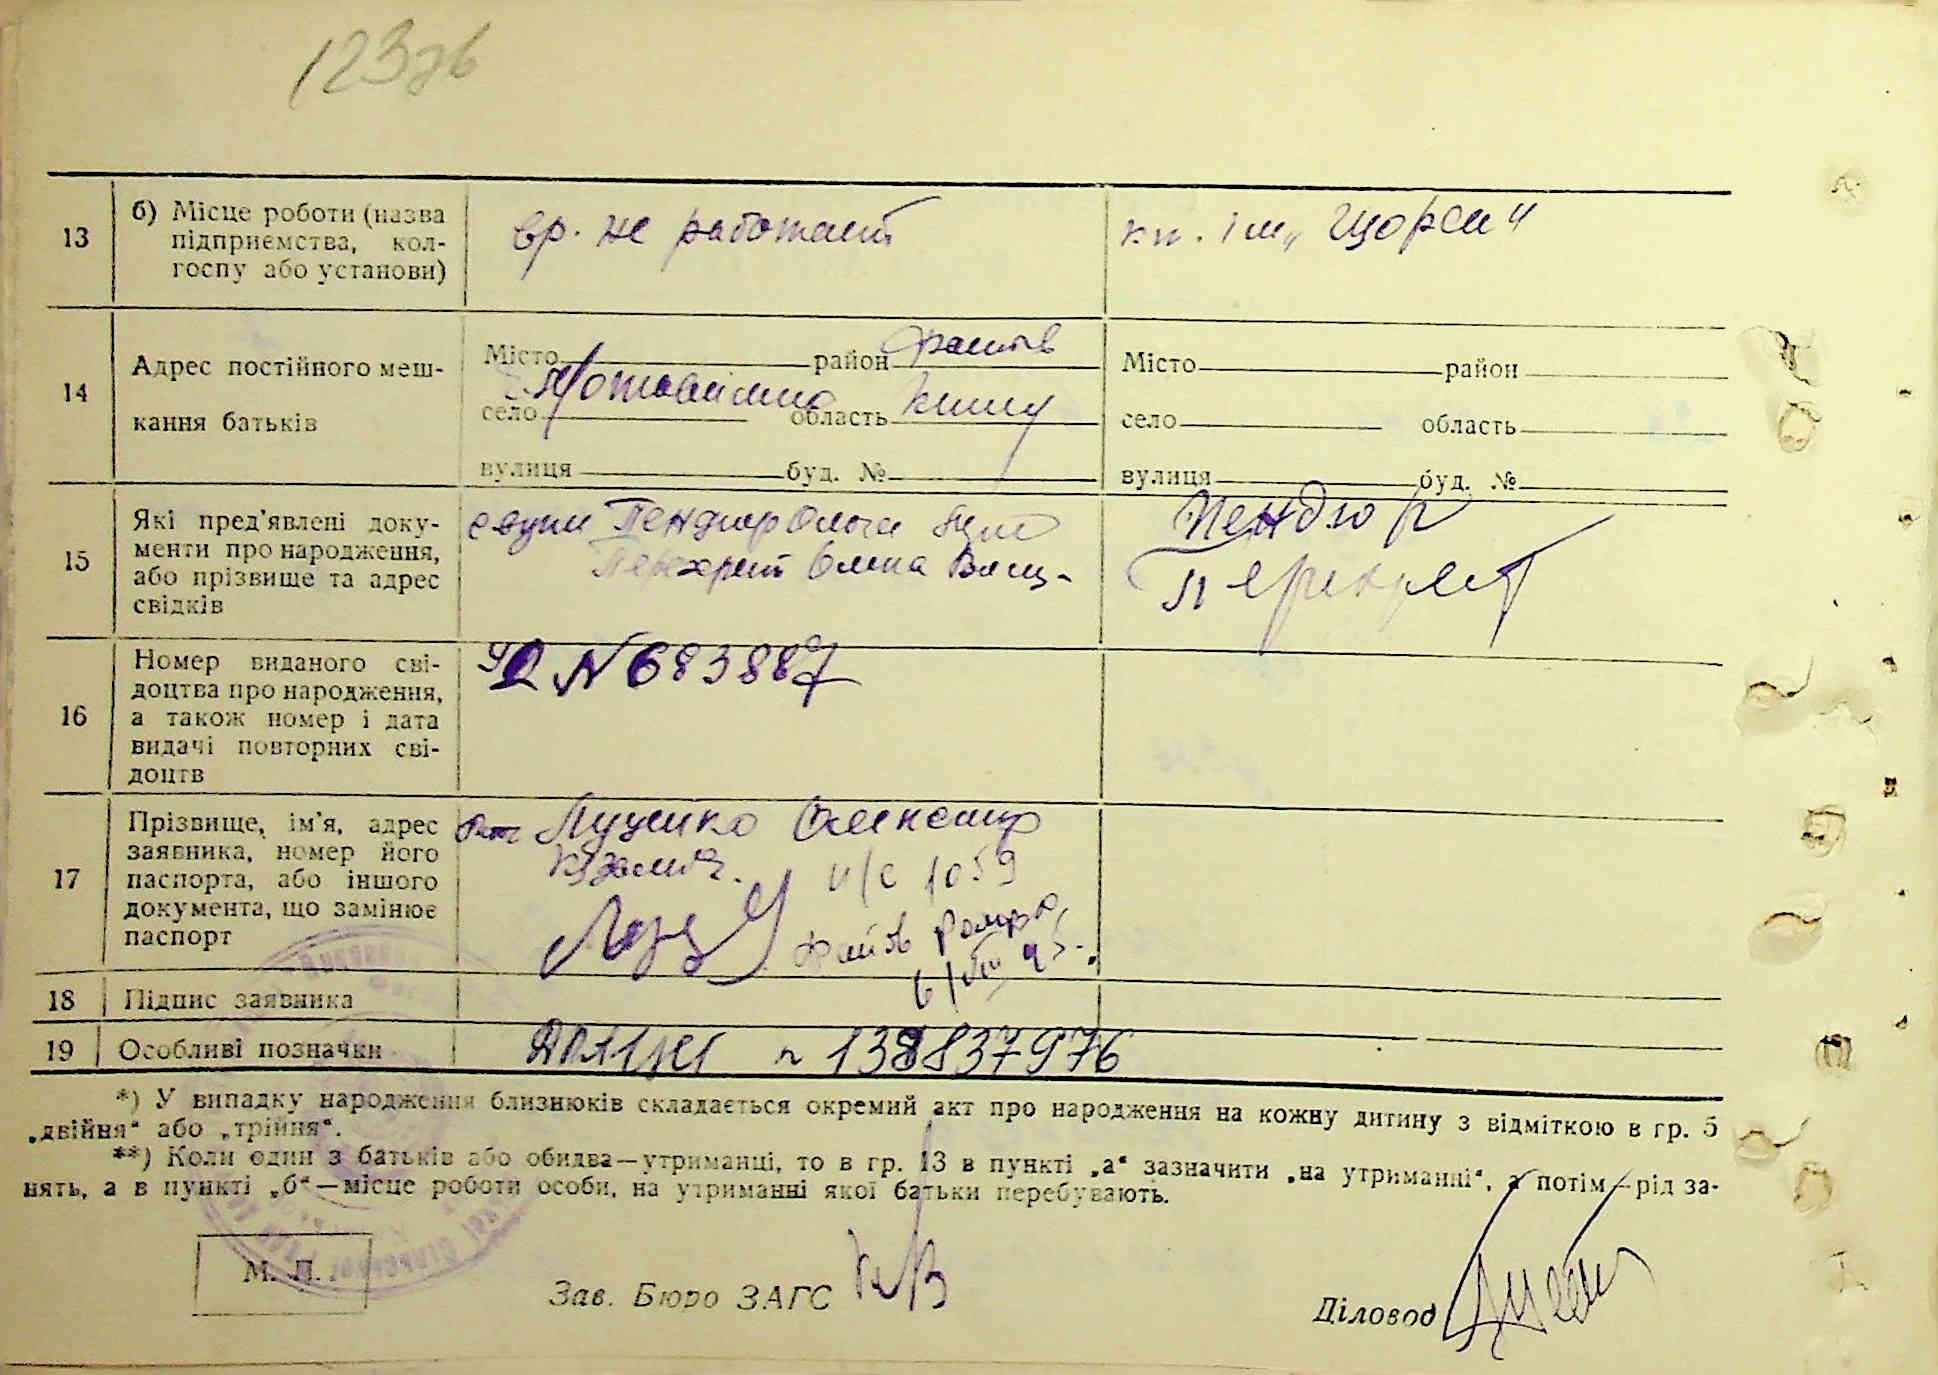 123
13
б) Місце роботи (назва
підприємства, кол-
госпу або установи)
вр. не работает
кп. ім „Щорса"
14
Адрес постійного меш-
кання батьків
Місто район Фастів
село Мотовилівка область Київ
вулиця буд. №
Місто район
село область
вулиця буд. №
15
Які пред'явлені доку-
менти про народження,
або прізвище та адрес
свідків
Пендюр Ольга
Перехрест Олена
Пендюр
Перехрест
16
Номер виданого сві-
доцтва про народження,
а також номер і дата
видачі повторних сві-
доцтв
N 683887
17
Прізвище, ім'я, адрес
заявника, номер його
паспорта, або іншого
документа, що замінює
паспорт
Луценко Олександр
п/с 1059
Фастів
6/VIII 45.
18
Підпис заявника
19
Особливі позначки
138837976
*) У випадку народження близнюків складається окремий акт про народження на кожну дитину з відміткою в гр. 5
„двійня" або „трійня".
**) Коли один з батьків або обидва—утриманці, то в гр. 13 в пункті „а" зазначити „на утриманні", а потім—рід за-
нять, а в пункті „б"—місце роботи особи, на утриманні якої батьки перебувають.
М. П.
Зав. Бюро ЗАГС
Діловод